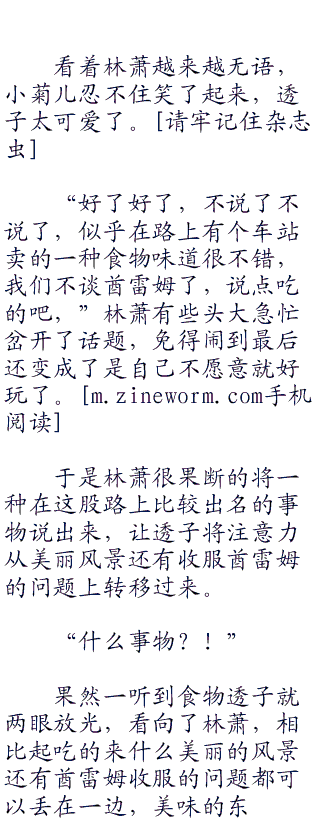 看着林萧越来越无语，
小菊儿忍不住笑了起来，透
子太可爱了。[请牢记住杂志
虫]
“好了好了，不说了不
说了，似乎在路上有个车站
卖的一种食物味道很不错，
我们不谈酋雷姆了，说点吃
的吧，”林萧有些头大急忙
岔开了话题，免得闹到最后
还变成了是自己不愿意就好
玩了。[m.zineworm.com手机
阅读]
于是林萧很果断的将一
种在这股路上比较出名的事
物说出来，让透子将注意力
从美丽风景还有收服酋雷姆
的问题上转移过来。
“什么事物？！”
果然一听到食物透子就
两眼放光，看向了林萧，相
比起吃的来什么美丽的风景
还有酋雷姆收服的问题都可
以丢在一边，美味的东